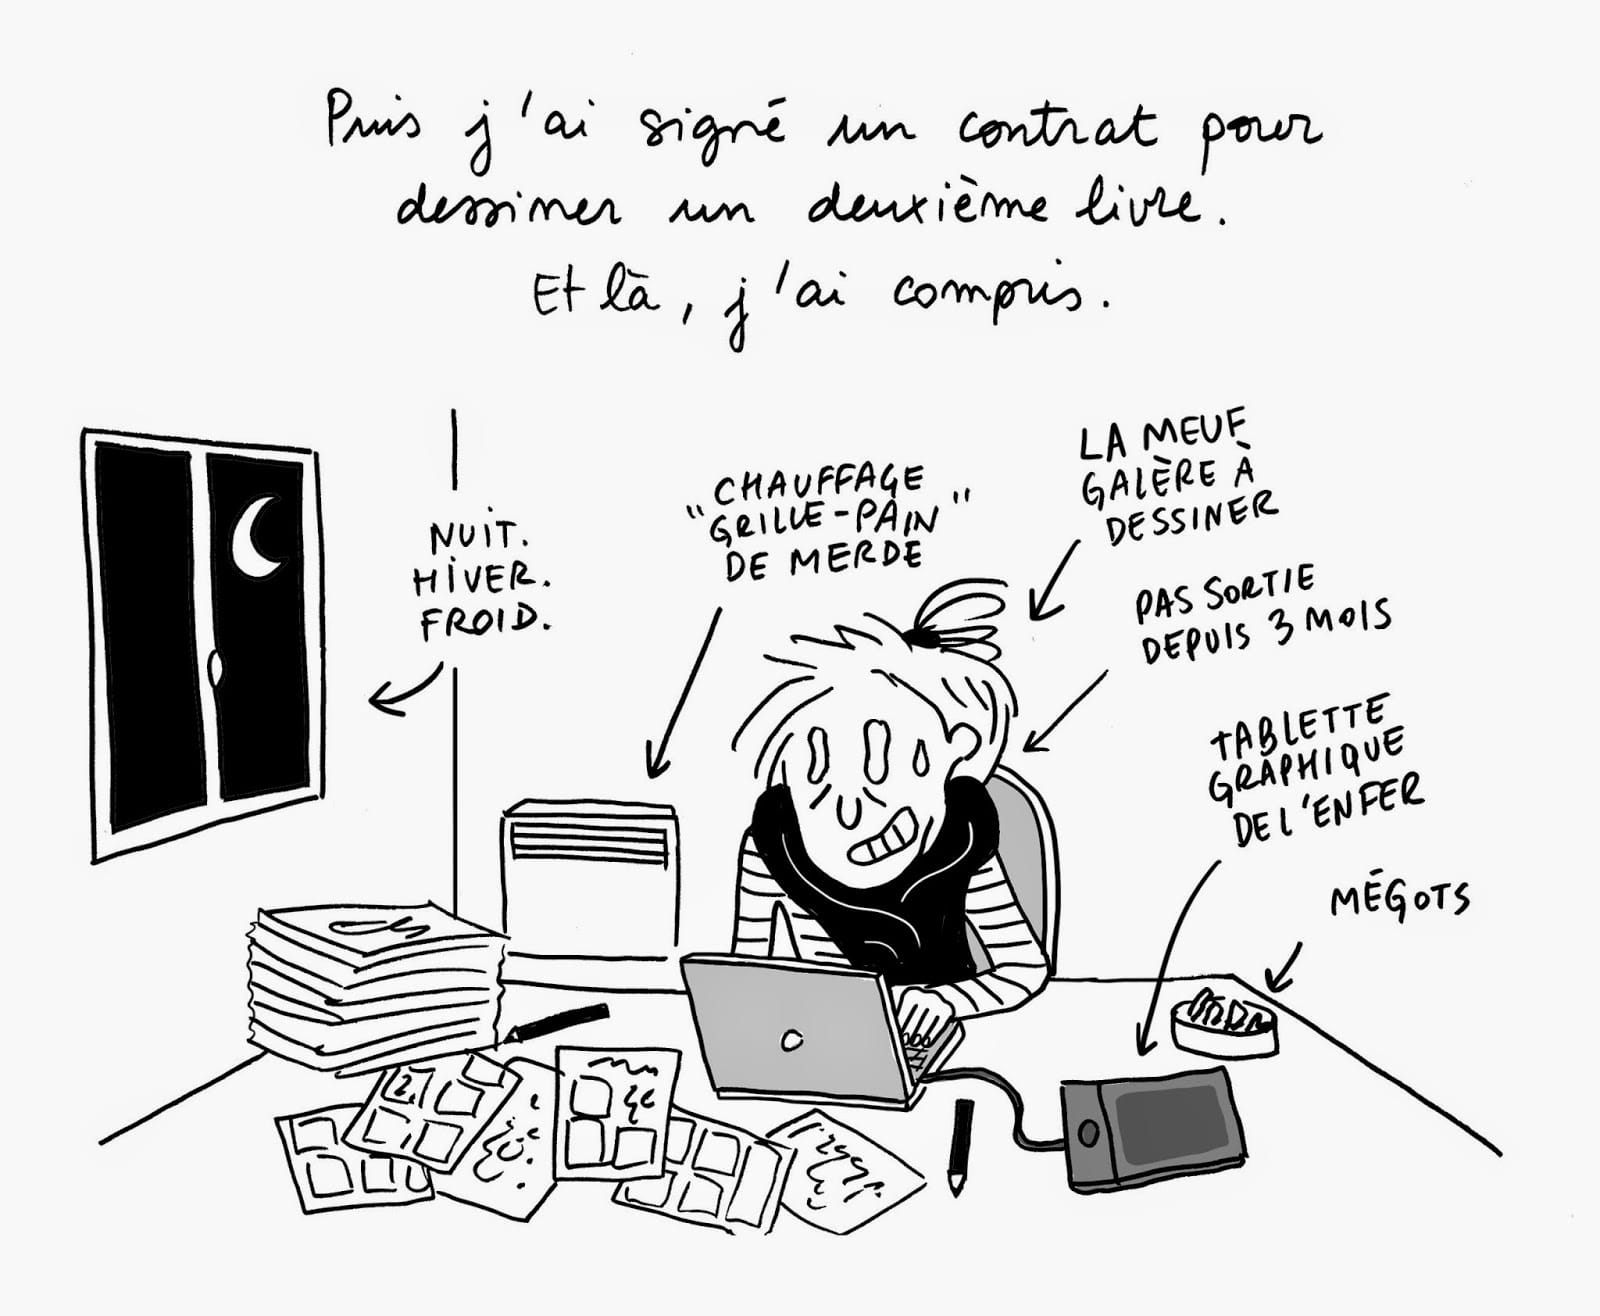 Puis j'ai signé un contrat pour
dessiner un deuxième livre.
Et là, j'ai compris.
NUIT.
HIVER.
FROID.
CHAUFFAGE
"GRILLE-PAIN"
DE MERDE
LA MEUF
GALÈRE À
DESSINER
PAS SORTIE
DEPUIS 3 MOIS
TABLETTE
GRAPHIQUE
DE L'ENFER
MÉGOTS